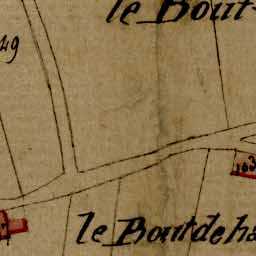 le Bout
49
163
le Bout de ha